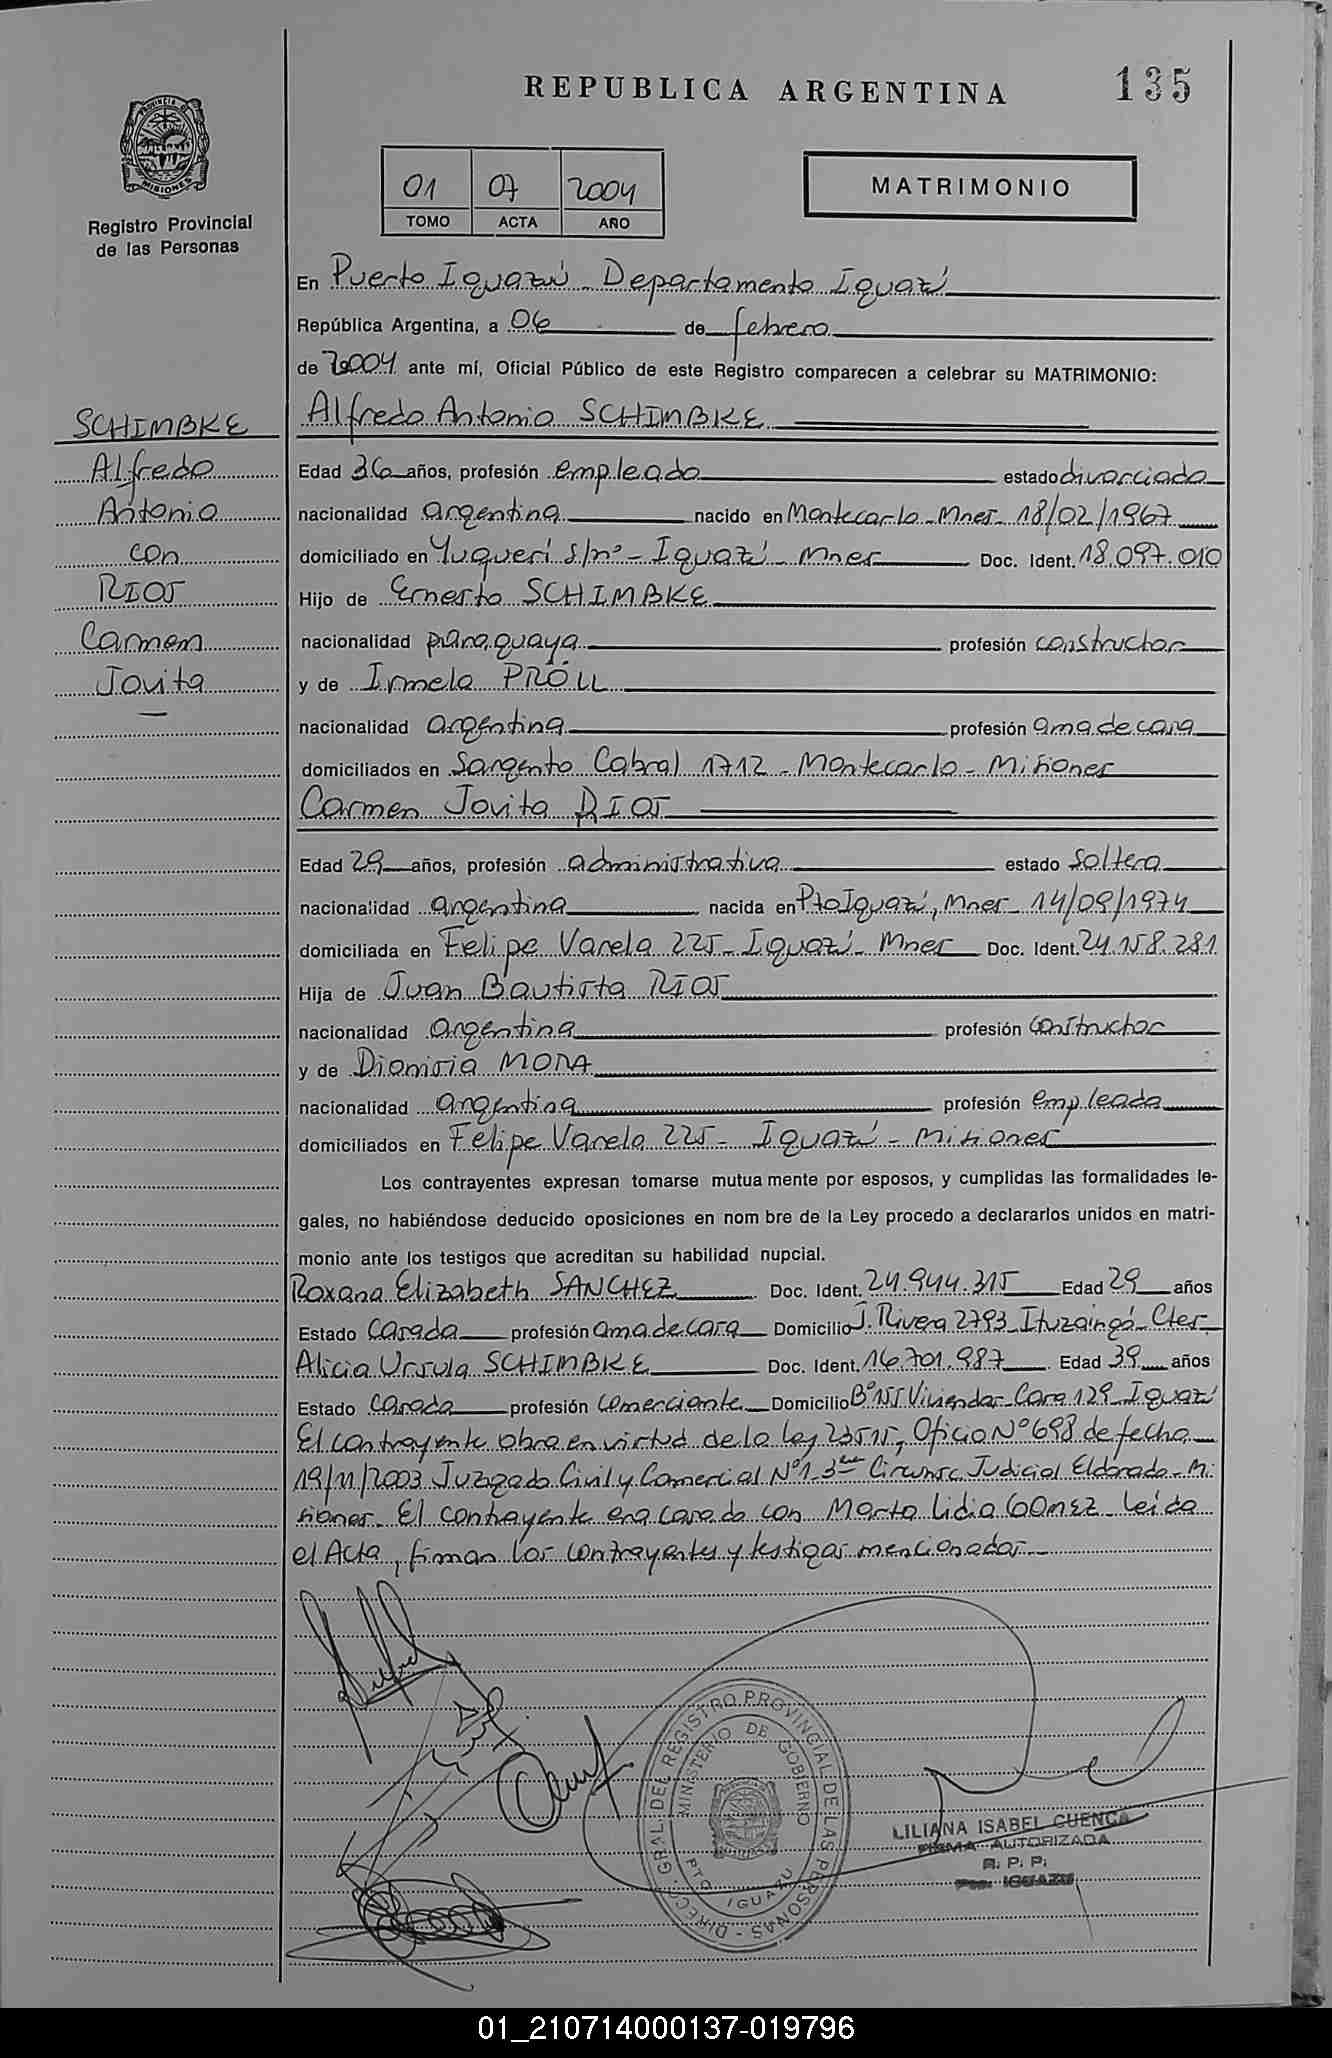 REPUBLICA ARGENTINA
135
PROVINCIA DE MISIONES
Registro Provincial
de las Personas
01 07 2004
TOMO ACTA AÑO
MATRIMONIO
En Puerto Iguazú - Departamento Iguazú
República Argentina, a 06 de febrero
de 2004 ante mí, Oficial Público de este Registro comparecen a celebrar su MATRIMONIO:
SCHIMBKE
Alfredo
Antonio
con
RIOS
Carmen
Jovita
Alfredo Antonio SCHIMBKE
Edad 36 años, profesión empleado estado divorciado
nacionalidad argentina nacido en Montecarlo - Mnes - 18/02/1967
domiciliado en Yuquerí s/nº - Iguazú - Mnes Doc. Ident. 18.097.010
Hijo de Ernesto SCHIMBKE
nacionalidad paraguaya profesión constructor
y de Irmela PRÖLL
nacionalidad argentina profesión ama de casa
domiciliados en Sargento Cabral 1712 - Montecarlo - Misiones
Carmen Jovita RIOS
Edad 29 años, profesión administrativa estado soltera
nacionalidad argentina nacida en Pto Iguazú, Mnes - 14/09/1974
domiciliada en Felipe Varela 225 - Iguazú - Mnes Doc. Ident. 24.158.281
Hija de Juan Bautista RIOS
nacionalidad argentina profesión constructor
y de Dionisia MORA
nacionalidad argentina profesión empleada
domiciliados en Felipe Varela 225 - Iguazú - Misiones
Los contrayentes expresan tomarse mutua mente por esposos, y cumplidas las formalidades le-
gales, no habiéndose deducido oposiciones en nom bre de la Ley procedo a declararlos unidos en matri-
monio ante los testigos que acreditan su habilidad nupcial.
Roxana Elizabeth SANCHEZ Doc. Ident. 24.944.315 Edad 29 años
Estado casada profesión ama de casa Domicilio J. Rivera 2793 - Ituzaingó - Ctes.
Alicia Ursula SCHIMBKE Doc. Ident. 16.701.987 Edad 39 años
Estado casada profesión comerciante Domicilio Bº 155 Viviendas - Casa 129 - Iguazú
El contrayente obra en virtud de la ley 23515, Oficio Nº 698 de fecha
19/11/2003 Juzgado Civil y Comercial Nº 1 - 3era Circunsc. Judicial Eldorado - Mi
siones. El contrayente era casado con Marta Lidia GOMEZ. Leída
el Acta, firman los contrayentes y testigos mencionados
DIRECC. GRAL. DEL REGISTRO PROVINCIAL DE LAS PERSONAS
MINISTERIO DE GOBIERNO
PTO IGUAZU
LILIANA ISABEL CUENCA
FIRMA AUTORIZADA
R. P. P.
Pto. IGUAZU
01_210714000137-019796